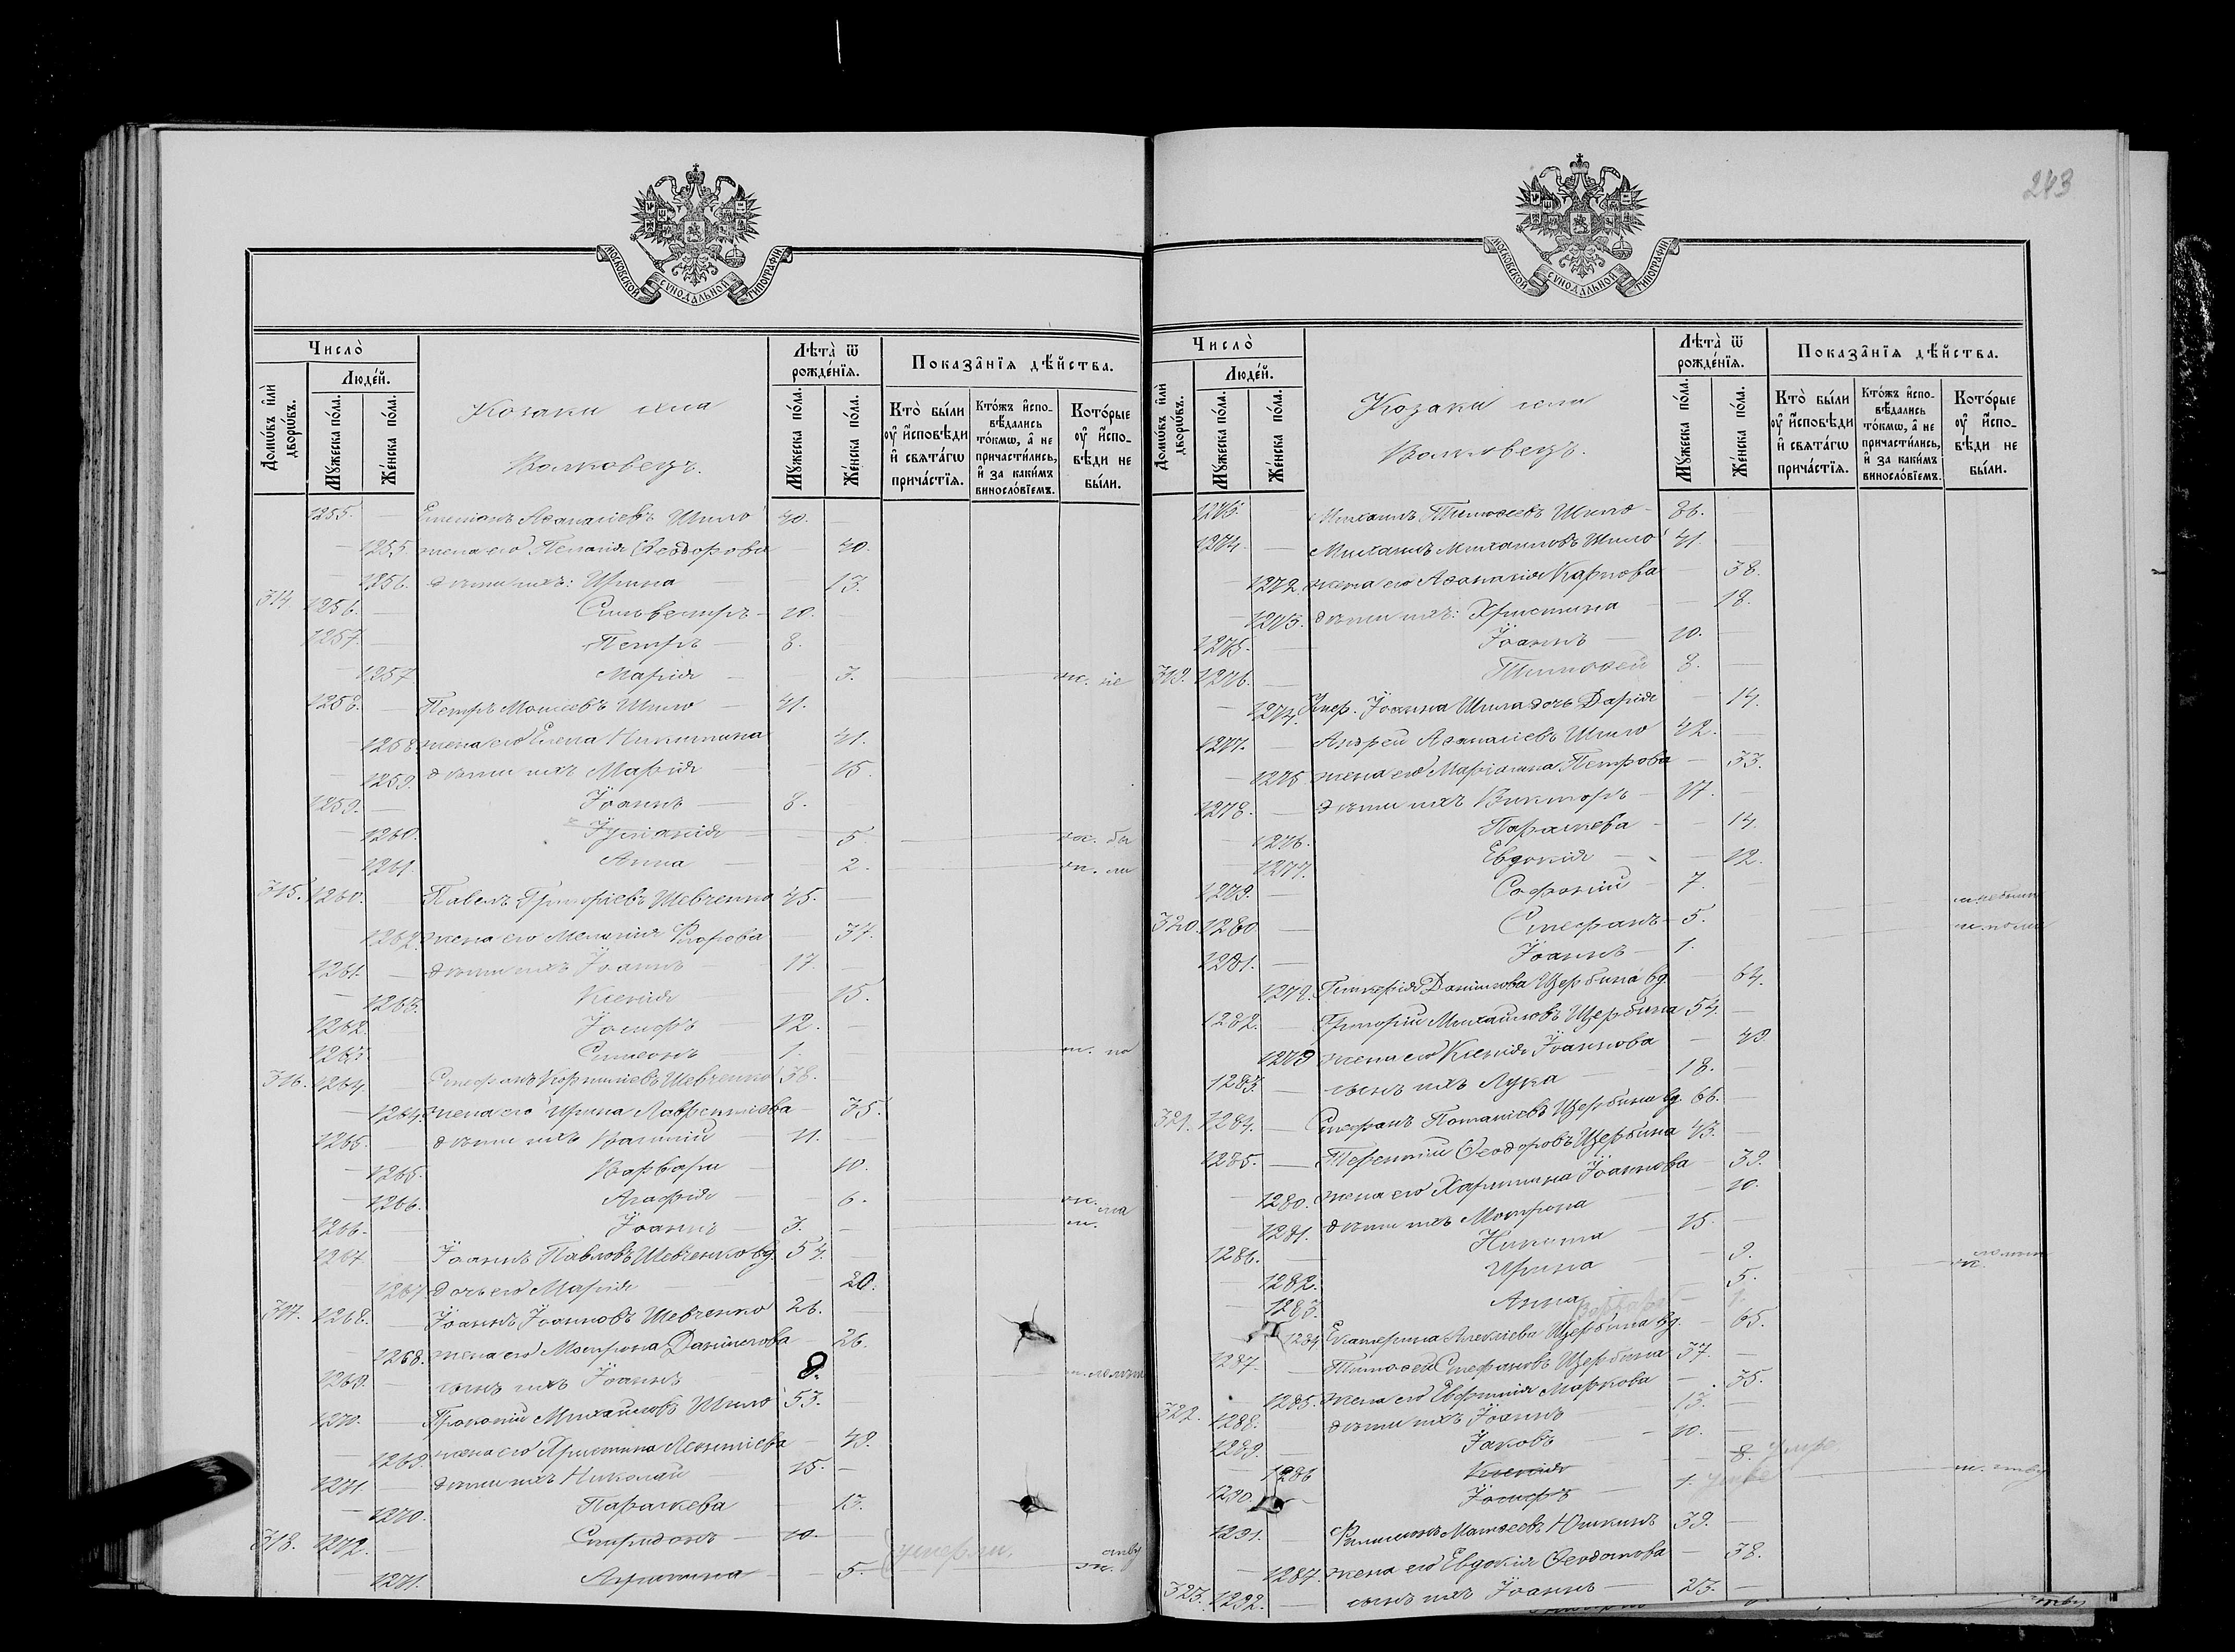 243
МОСКОВСКОЙ СУНОДАЛЬНОЙ ТИПОГРАФІИ
Число̀
Людей.
Домѡвъ и҆лѝ дворѡвъ.
Мꙋжеска по́ла.
Же́нска по́ла.
Козаки села
Волковецъ.
Лѣта̀ ѿ рожде́нїѧ.
Мꙋжеска по́ла.
Же́нска по́ла.
Показа̑нїѧ дѣ́йства.
Кто̀ бы́ли ᲂу҆ и҆сповѣди и҆ свѧта́гѡ прича́стїѧ.
Кто́жъ и҆сповѣдались то́кмѡ, а҆ не причасти́лись, и҆ за каки́мъ виносло́вїемъ.
Кото́рые ᲂу҆ и҆сповѣди не бы́ли.
1255. Симеонъ Аѳанасіевъ Шило 40.
1255 жена его Пелагія Ѳеодорова 40.
1256. дѣти ихъ: Ирина 13.
314. 1256. Сильвестръ 10.
1257. Петръ 8.
1257 Марія 3.
1258. Петръ Моисеевъ Шило 41.
1258 жена его Елена Никитина 41.
1259. дѣти ихъ Марія 15.
1259. Іоаннъ 8.
1260. 5.
1261 Анна 2.
315. 1260. Павелъ Григоріевъ Шевченко 45.
1262. жена его Меланія 37.
1261. дѣти ихъ Іоаннъ 17.
1263. Ксенія 15.
1262. Іосифъ 12.
1263. Симеонъ 1.
316. 1264. Стефанъ Корниліевъ Шевченко 38.
1264. жена его Ирина Лаврентіева 35.
1265. дѣти ихъ Василій 11.
1265. Варвара 10.
1266. Агафія 6.
1266. Іоаннъ 3.
1267. Іоаннъ Павловъ Шевченко вд. 54.
1267 дочь его Марія 20.
317. 1268. Іоаннъ Іоанновъ Шевченко 26.
1268. жена его Мотрона Даніилова 26.
1269. сынъ ихъ Іоаннъ 8.
1270. Прокопій Михайловъ Шило 53.
1269. жена его Христина Леонтіева 49.
1271. дѣти ихъ Николай 15.
1270. Параскева 13.
318. 1272. Спиридонъ 10.
умерли.
1271. 5.
Число̀
Людей.
Домѡвъ и҆лѝ дворѡвъ.
Мꙋжеска по́ла.
Же́нска по́ла.
Козаки села
Волковецъ.
Лѣта̀ ѿ рожде́нїѧ.
Мꙋжеска по́ла.
Же́нска по́ла.
Показа̑нїѧ дѣ́йства.
Кто̀ бы́ли ᲂу҆ и҆сповѣди и҆ свѧта́гѡ прича́стїѧ.
Кто́жъ и҆сповѣдались то́кмѡ, а҆ не причасти́лись, и҆ за каки́мъ виносло́вїемъ.
Кото́рые ᲂу҆ и҆сповѣди не бы́ли.
1273. Михаилъ Тимоѳеевъ Шило 86.
1274. Михаилъ Михаиловъ Шило 41.
1272. жена его Аѳанасія Карпова 38.
1273. дѣти ихъ: Христина 18.
1275. Іоаннъ 10.
319. 1276. Тимоѳей 8.
1274. Умер. Іоанна Шила дочь Дарія 14.
1277. Андрей Аѳанасіевъ Шило 42.
1275 жена его Маріанна Петрова 33.
1278. дѣти ихъ Викторъ 17.
1276. Параскева 14.
1277. Евдокія 12.
1279. Софоній 7.
320. 1280 Стефанъ 5.
1281. Іоаннъ 1.
1279. Гликерія Даніилова Щербина вд. 64.
1282. Григорій Михайловъ Щербина 54.
1279 жена его Ксенія Іоаннова 49.
1283. сынъ ихъ Лука 18.
321. 1284. Стефанъ Потапіевъ Щербина вд. 66.
1285. Терентій Ѳеодоровъ Щербина 43.
1280. жена его Харитина Іоаннова 39.
1281. дѣти ихъ Мотрона 20.
1286. Никита 15.
1282. Ирина 9.
1283. Анна 5.
Варвара 1.
1284 Екатерина Алексіева Щербина вд. 65.
1287. Тимоѳей Стефановъ Щербина 37.
1285. жена его Евфимія Маркова 35.
322. 1288. дѣти ихъ Іоаннъ 13.
1289. Іаковъ 10.
1286 Ксенія 8. умре
1290. Іосифъ 1. умре
1291. Филимонъ Матѳеевъ Юшкинъ 39.
1287. жена его Евдокія 38.
323. 1292. сынъ ихъ Іоаннъ 25.